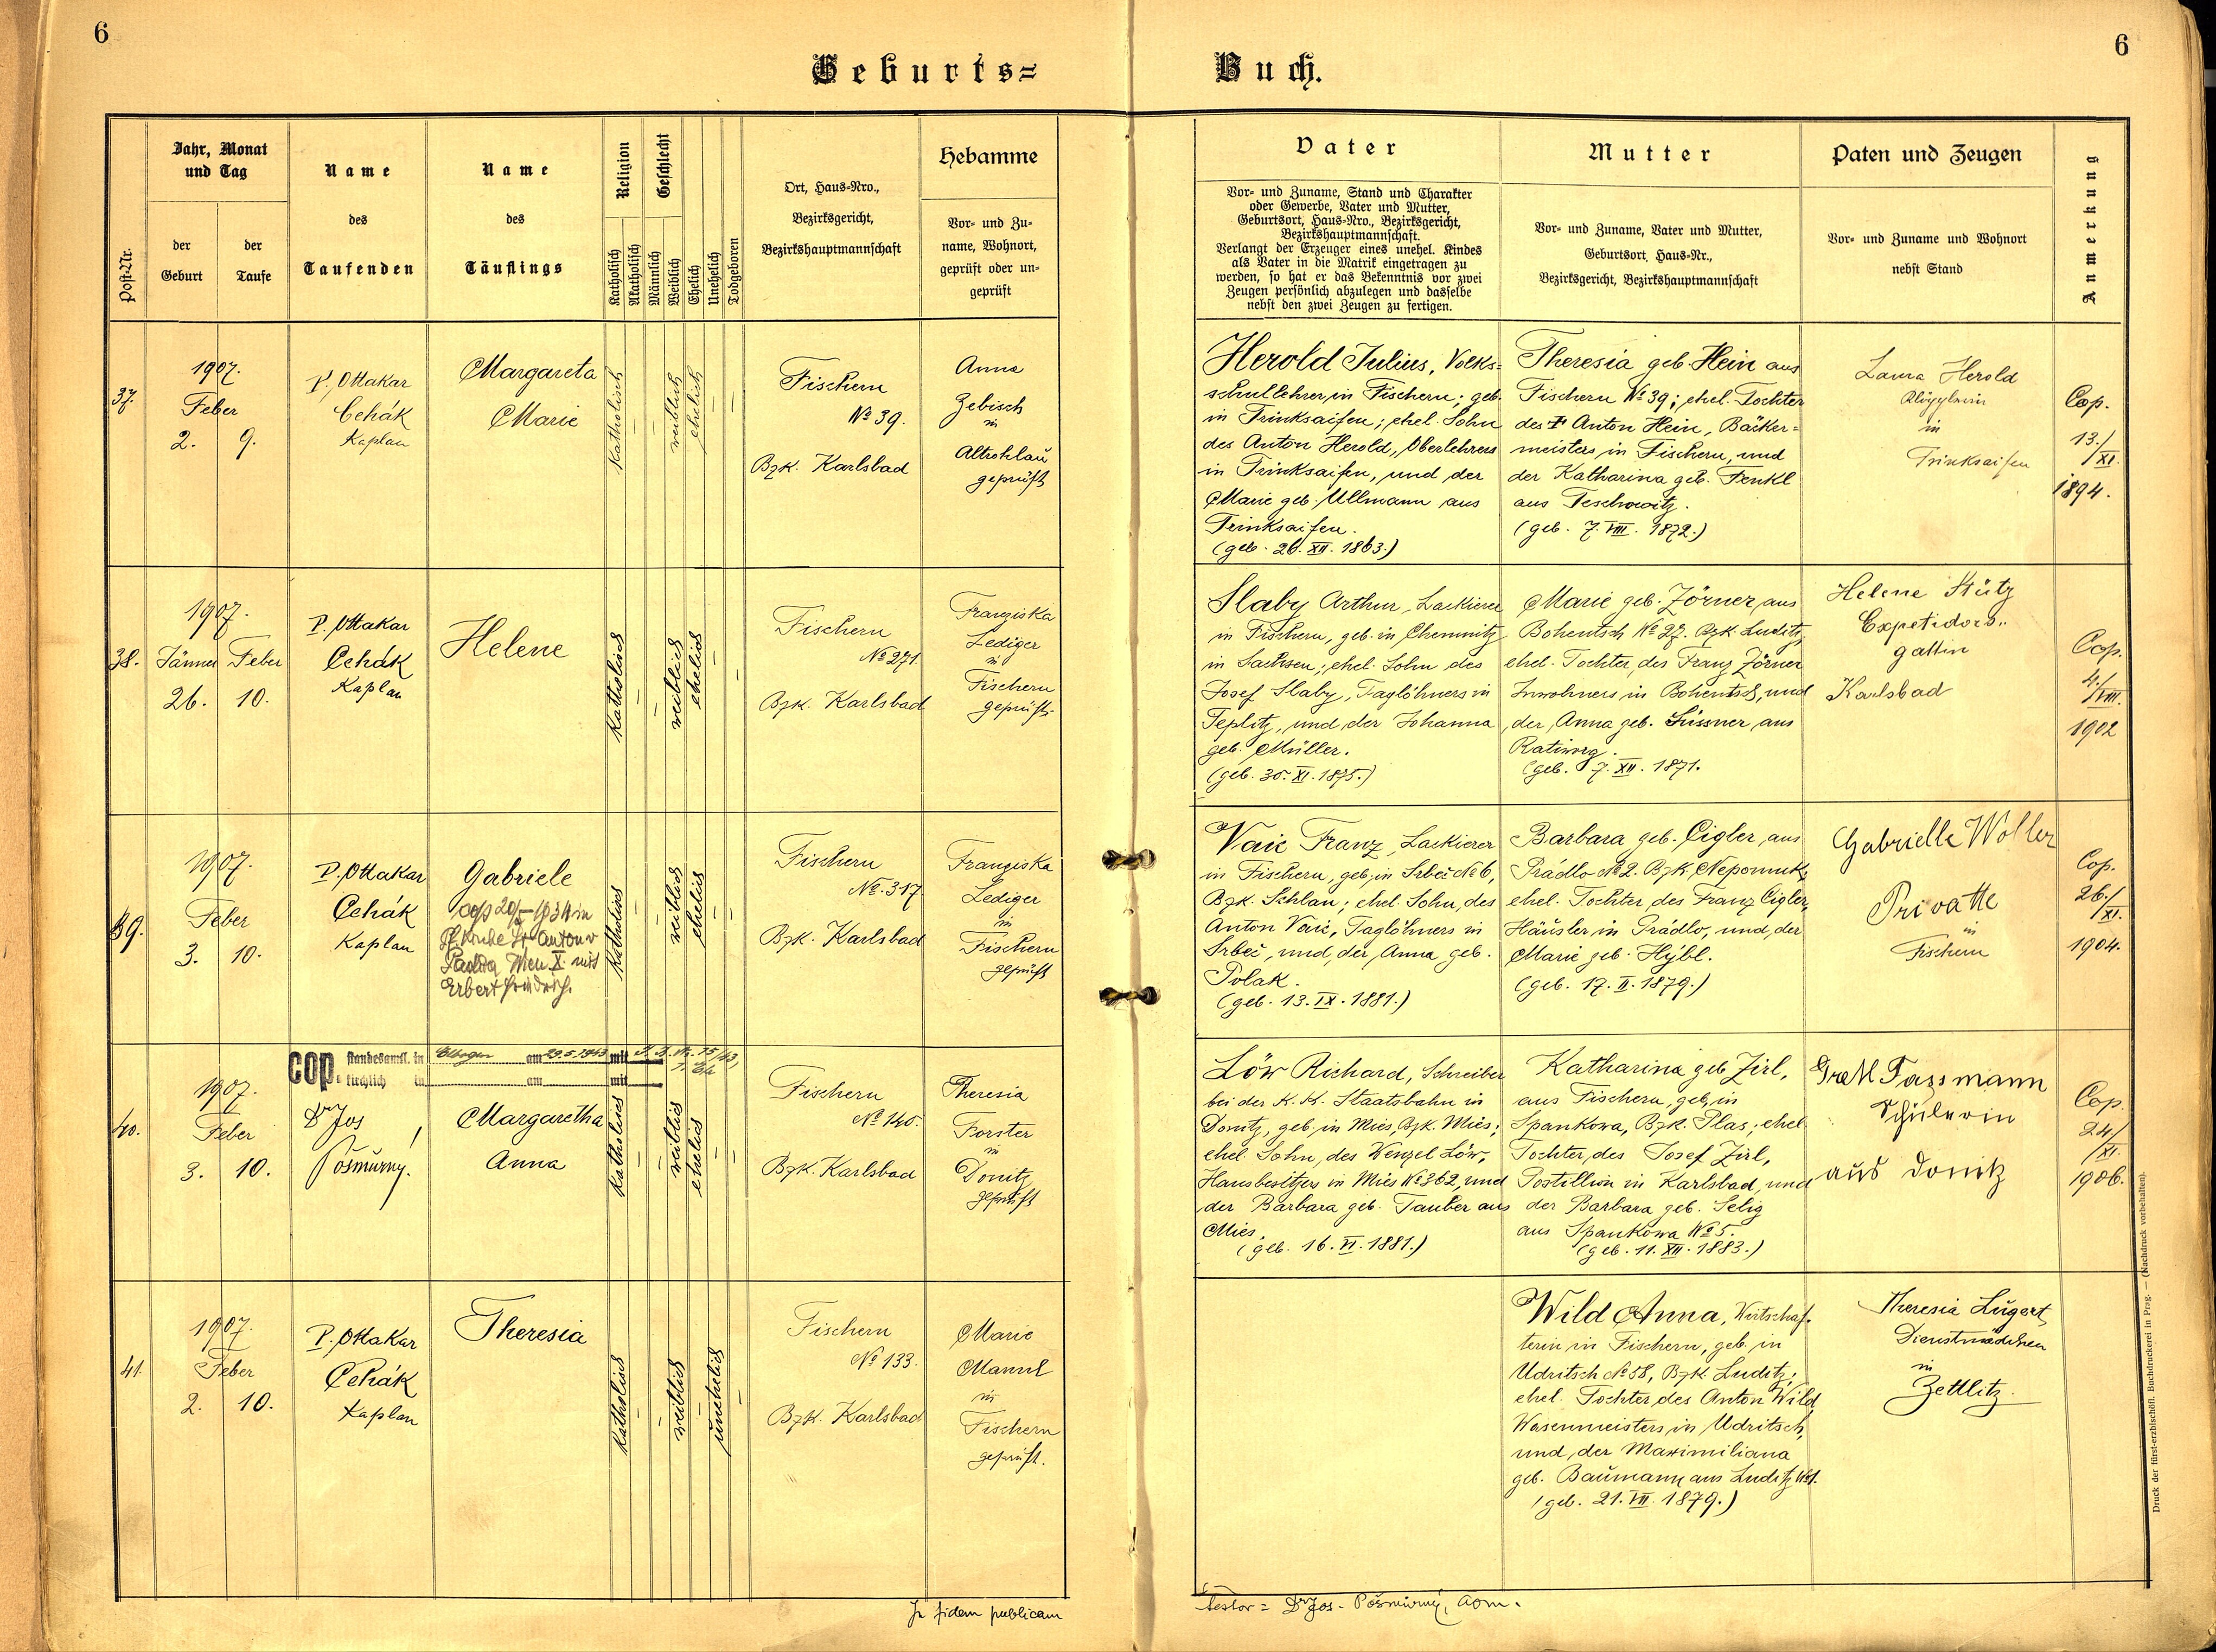 6
6
Geburts=
Buch.
Post-Nr.
Jahr, Monat
und Tag
der
Geburt
der
Taufe
Name
des
Taufenden
Name
des
Täuflings
Religion
Katholisch
Akatholisch
Geschlecht
Männlich
Weiblich
Ehelich
Unehelich
Todgeboren
Ort, Haus-Nro.,
Bezirksgericht,
Bezirkshauptmannschaft
Hebamme
Vor- und Zu-
name, Wohnort,
geprüft oder un-
geprüft
Vater
Vor- und Zuname, Stand und Charakter
oder Gewerbe, Vater und Mutter,
Geburtsort, Haus-Nro., Bezirksgericht,
Bezirkshauptmannschaft.
Verlangt der Erzeuger eines unehel. Kindes
als Vater in die Matrik eingetragen zu
werden, so hat er das Bekenntnis vor zwei
Zeugen persönlich abzulegen und dasselbe
nebst den zwei Zeugen zu fertigen.
Mutter
Vor- und Zuname, Vater und Mutter,
Geburtsort, Haus-Nr.,
Bezirksgericht, Bezirkshauptmannschaft
Paten und Zeugen
Vor- und Zuname und Wohnort
nebst Stand
Anmerkung
37.
1907.
Feber
2. 9.
P. Ottakar
Čehák
Kaplan
Margareta
Marie
Katholisch
weiblich
ehelich
Fischern
No 39.
Bzk. Karlsbad
Anna
Zebisch
in
Altrohlau
geprüft
Herold Julius, Volks=
schullehrer in Fischern; geb.
in Trinksaifen; ehel. Sohn
des Anton Herold, Oberlehrers
in Trinksaifen, und der
Marie geb. Ullmann aus
Trinksaifen.
(geb. 26. XII. 1863.)
Theresia geb. Hein aus
Fischern No 39; ehel. Tochter
des Anton Hein, Bäcker=
meisters in Fischern, und
der Katharina geb. Fenkl
aus Teschowitz.
(geb. 7. VIII. 1872.)
Laura Herold
in
Trinksaifen
Cop.
13./
XI.
1894.
38.
1907.
Jänner Feber
26. 10.
P. Ottakar
Čehák
Kaplan
Helene
Katholisch
weiblich
ehelich
Fischern
No 271.
Bzk. Karlsbad
Franziska
Lediger
in
Fischern
geprüft.
Slaby Arthur, Lackierer
in Fischern, geb. in Chemnitz
in Sachsen; ehel. Sohn des
Josef Slaby, Taglöhners in
Teplitz, und der Johanna
geb. Müller.
(geb. 30. XI. 1875.)
Marie geb. Zörner aus
Bohentsch No 27. Bzk. Luditz,
ehel. Tochter des Franz Zörner
Inwohners in Bohentsch, und
der Anna geb. Süssner aus
Ratiworg.
(geb. 7. XII. 1871.
Helene Stütz
Expetidors..
gattin
Karlsbad
Cop.
4./
VIII.
1902
39.
1907.
Feber
3. 10.
P. Ottakar
Čehák
Kaplan
Gabriele
Pf. Kirche St. Anton v
Padua Wien X. mit
Erbert Friedrich.
Katholisch
weiblich
ehelich
Fischern
No. 317
Bzk. Karlsbad
Franziska
Lediger
in
Fischern
geprüft
Vaic Franz, Lackierer
in Fischern, geb. in Srbeč No 6,
Bzk. Schlan; ehel. Sohn des
Anton Vaic, Taglöhners in
Srbeč, und der Anna geb.
Polak.
(geb. 13. IX. 1881.)
Barbara geb. Cigler, aus
Prádlo No 2. Bzk. Nepomuk,
ehel. Tochter des Franz Cigler,
Häusler in Prádlo, und der
Marie geb. Hýbl.
(geb. 17. II. 1879.)
Gabrielle Woller
Privatte
in
Fischern
Cop.
26./
XI.
1904.
cop. standesamtl. in Elbogen am 29.5.1943 mit
kirchlich in am mit
40.
1907.
Feber
3. 10.
Dr Jos
Pošmurný.
Margaretha
Anna
Katholisch
weiblich
ehelich
Fischern
No 140.
Bzk. Karlsbad
Theresia
Forster
in
Donitz
geprüft
Löw Richard, Schreiber
bei der K. K. Staatsbahn in
Donitz, geb. in Mies, Bzk. Mies;
ehel. Sohn des Wenzel Löw,
Hausbesitzers in Mies No 362, und
der Barbara geb. Tauber aus
Mies.
(geb. 16. VI. 1881.)
Katharina geb. Zirl,
aus Fischern, geb. in
Spankowa, Bzk. Plas; ehel.
Tochter des Josef Zirl,
Postillion in Karlsbad, und
der Barbara geb. Selig
aus Spankowa No 5.
(geb. 11. XII. 1883.)
Gretl Fassmann
Schülerin
aus Donitz
Cop.
24/
XI.
1906.
41.
1907.
Feber
2. 10.
P. Ottakar
Čehák
Kaplan
Theresia
Katholisch
weiblich
unehelich
Fischern
No 133.
Bzk. Karlsbad
Marie
in
Fischern
geprüft.
Wild Anna, Wirtschaf-
terin in Fischern, geb. in
Udritsch No 58, Bzk. Luditz;
ehel. Tochter des Anton Wild
Wasenmeisters in Udritsch,
und der Maximiliana
geb. Baumann aus Luditz
(geb. 21. VII. 1879.)
Theresia Lugert
Dienstmädchen
in
Zettlitz.
In fidem publicam
testor = Dr Jos. Pošmurný, Adm.
Druck der fürst-erzbischöfl. Buchdruckerei in Prag. — (Nachdruck vorbehalten).